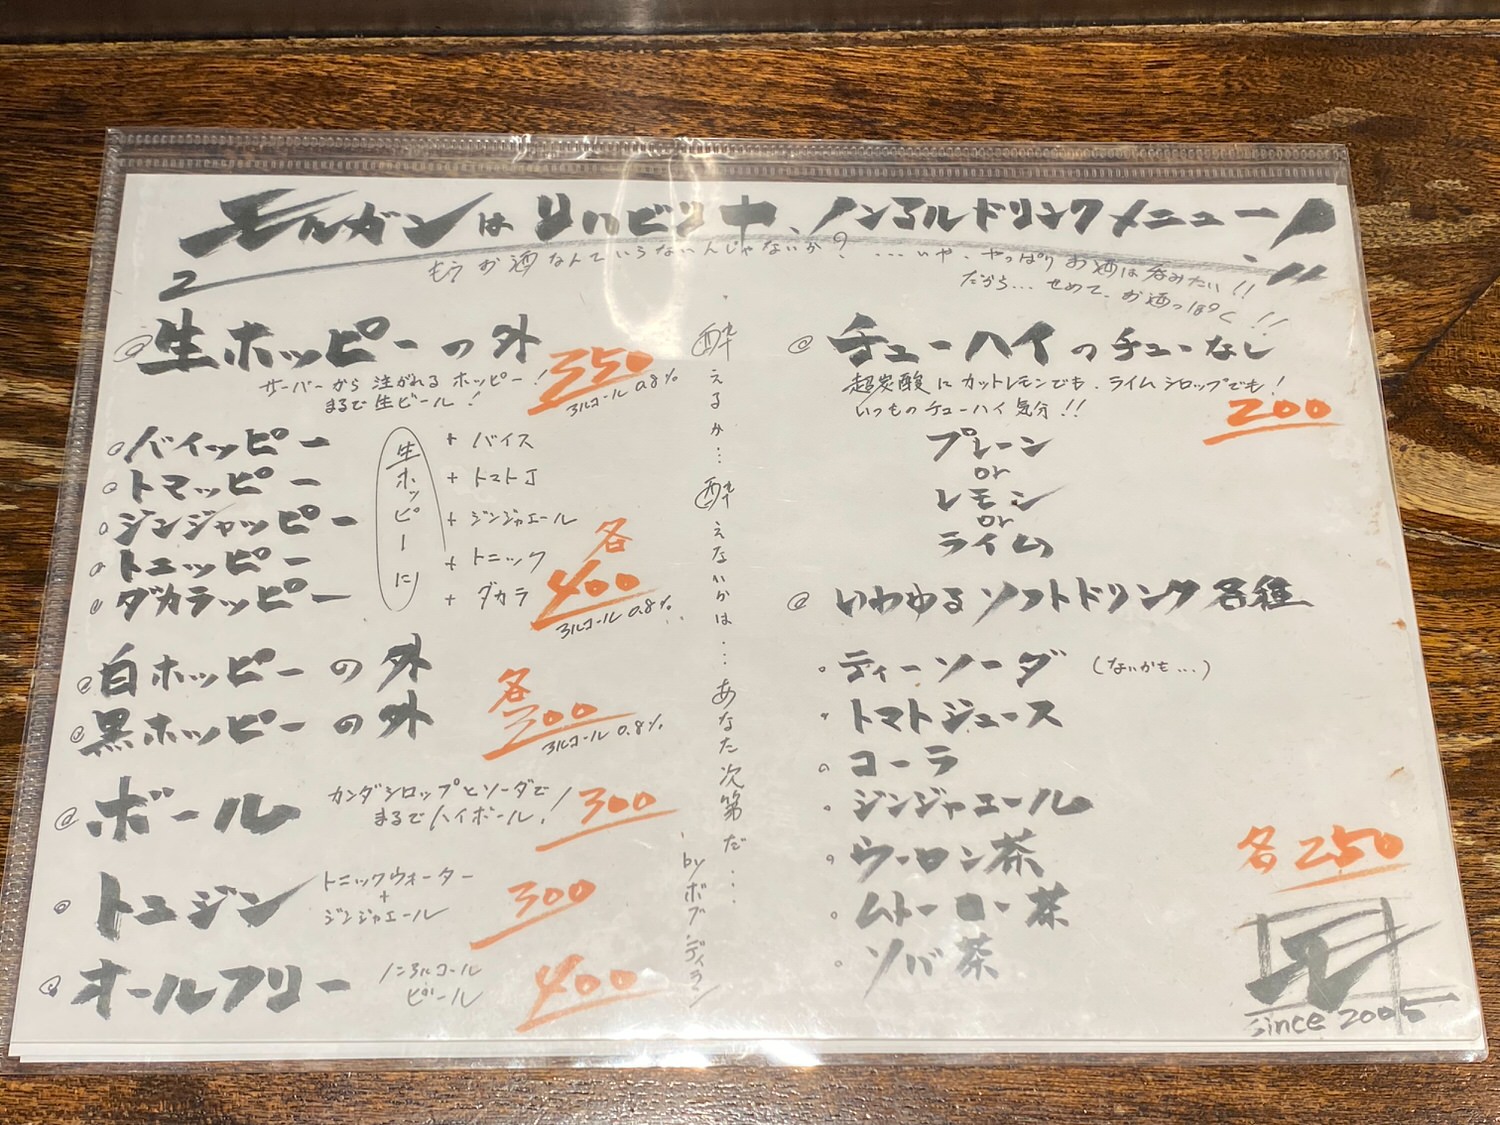 モルガンはリハビリ中、ノンアルドリンクメニュー!!
もうお酒なんていらないんじゃないか? ...いや、やっぱりお酒は呑みたい!!
だから...せめて、お酒っぽく!!
@生ホッピーの外
350
サーバーから注がれるホッピー!
まるで生ビール!
アルコール0.8%
バイッピー
トマッピー
ジンジャッピー
トニッピー
ダカラッピー
生ホッピーに
+ バイス
+ トマトJ
+ ジンジャエール
+ トニック
+ ダカラ
各
400
アルコール0.8%
@白ホッピーの外
@黒ホッピーの外
各
300
アルコール0.8%
@ボール
カンダシロップとソーダで
まるでハイボール!
300
@トニジン
トニックウォーター
+
ジンジャエール
300
@オールフリー
ノンアルコール
ビール
400
酔えるか...酔えないかは...あなた次第だ...
by ボブ・ディラン
@チューハイのチューなし
超炭酸にカットレモンでも、ライムシロップでも!
いつものチューハイ気分!!
200
プレーン
or
レモン
or
ライム
@いわゆるソフトドリンク各種
ティーソーダ (ないかも...)
トマトジュース
コーラ
ジンジャエール
ウーロン茶
ムトーロー茶
ソバ茶
各250
モ
since 2005